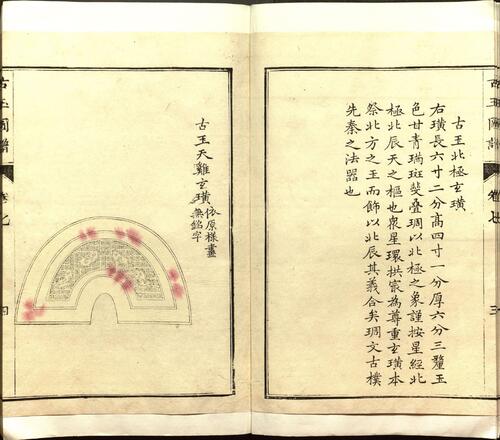 古玉圖譜 卷七 三
古玉北極玄璜
右璜長六寸二分高四寸一分厚六分三釐玉
色甘青瑞斑疊琱以北極之象謹按星經北
極北辰天之樞也衆星環拱㝡為尊重玄璜本
祭北方之玉而飾以北辰其義合矣琱文古樸
先秦之法器也
古玉天雞玄璜 依原樣畫
無銘字
古玉圖譜 卷七 四